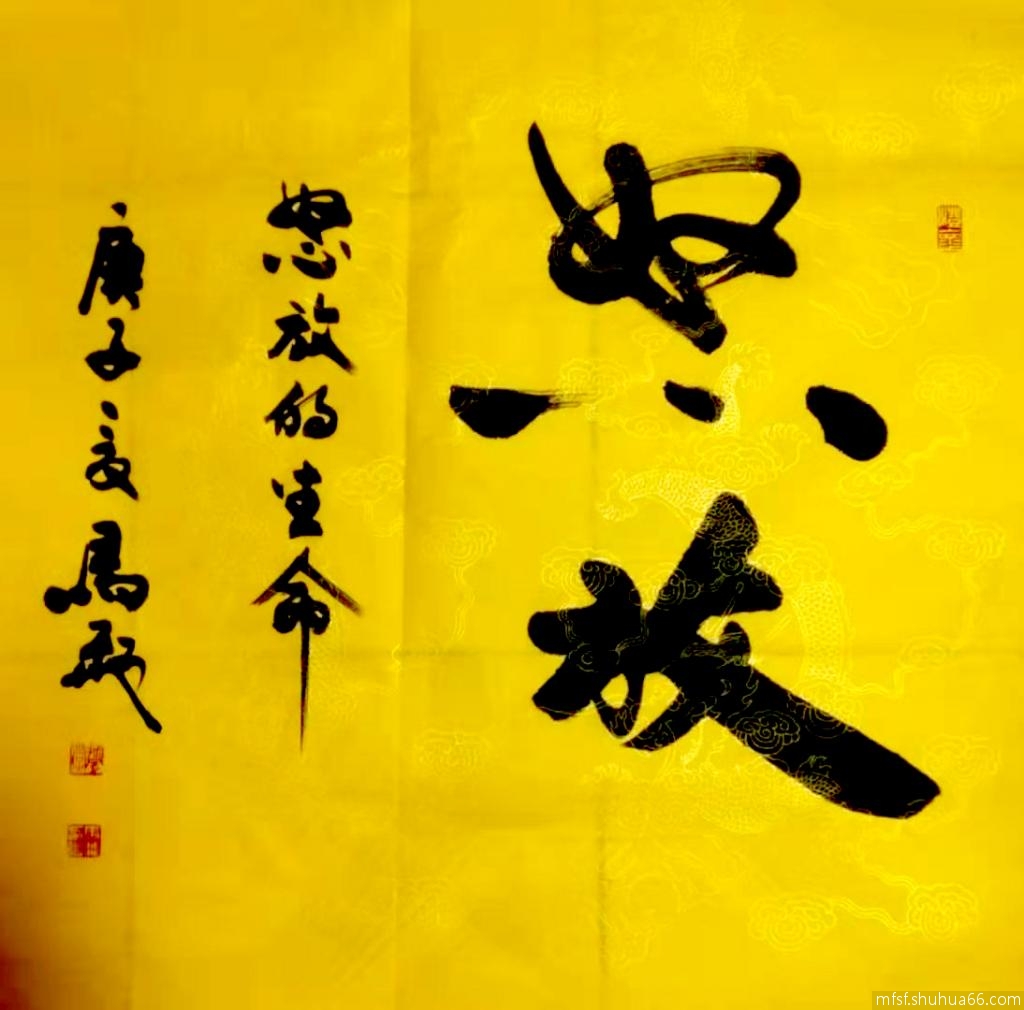 怒放
怒放的生命
庚子夏馬
mfsf.shuhua66.com